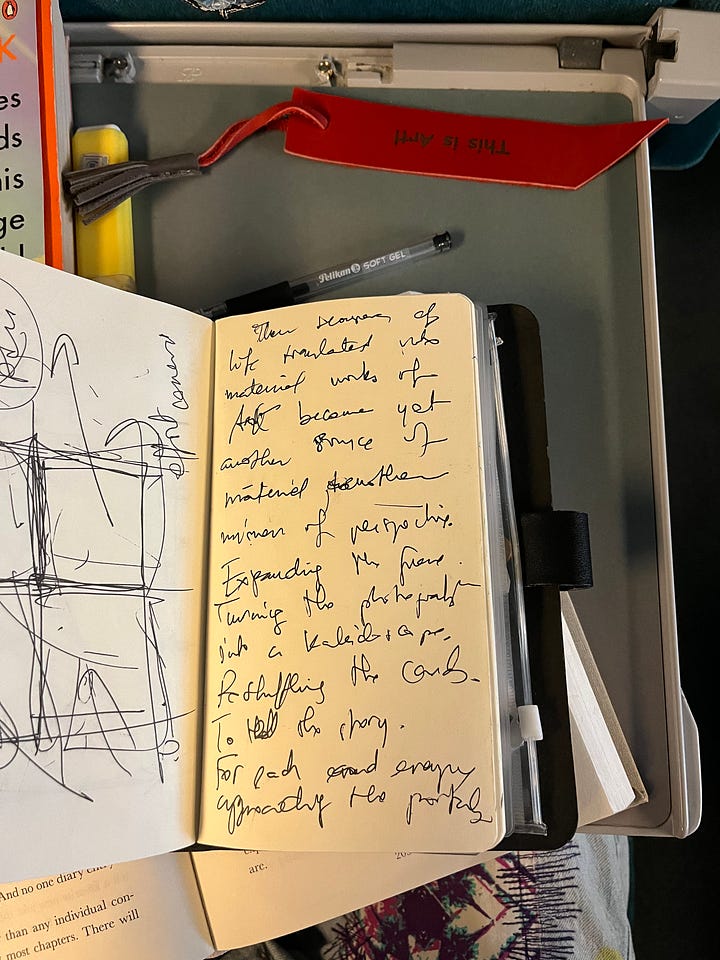 K
es
ds
his
ge
This is Art!
Pelikan SOFT GEL
of
life translated into
material works of
Art become yet
another source of
material another
mirror of perspective.
Expanding the frame.
Turning the photograph
into a kaleidoscope.
Reshuffling the cards.
To tell the story.
For each
approaching the portal
And no one diary entry
than any individual con-
most chapters. There will
are.